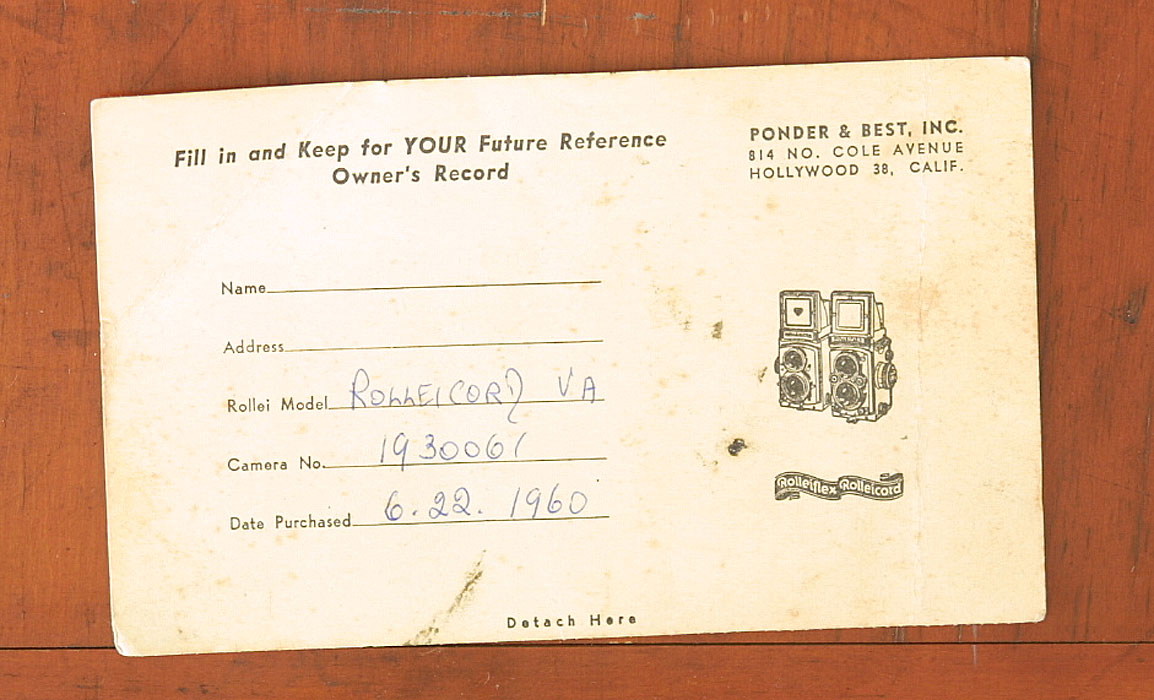 Fill in and Keep for YOUR Future Reference
Owner's Record
PONDER & BEST, INC.
814 NO. COLE AVENUE
HOLLYWOOD 38, CALIF.
Name
Address
Rollei Model ROLLEICORD VA
Camera No. 1930061
Date Purchased 6.22.1960
Rolleiflex Rolleicord
Detach Here